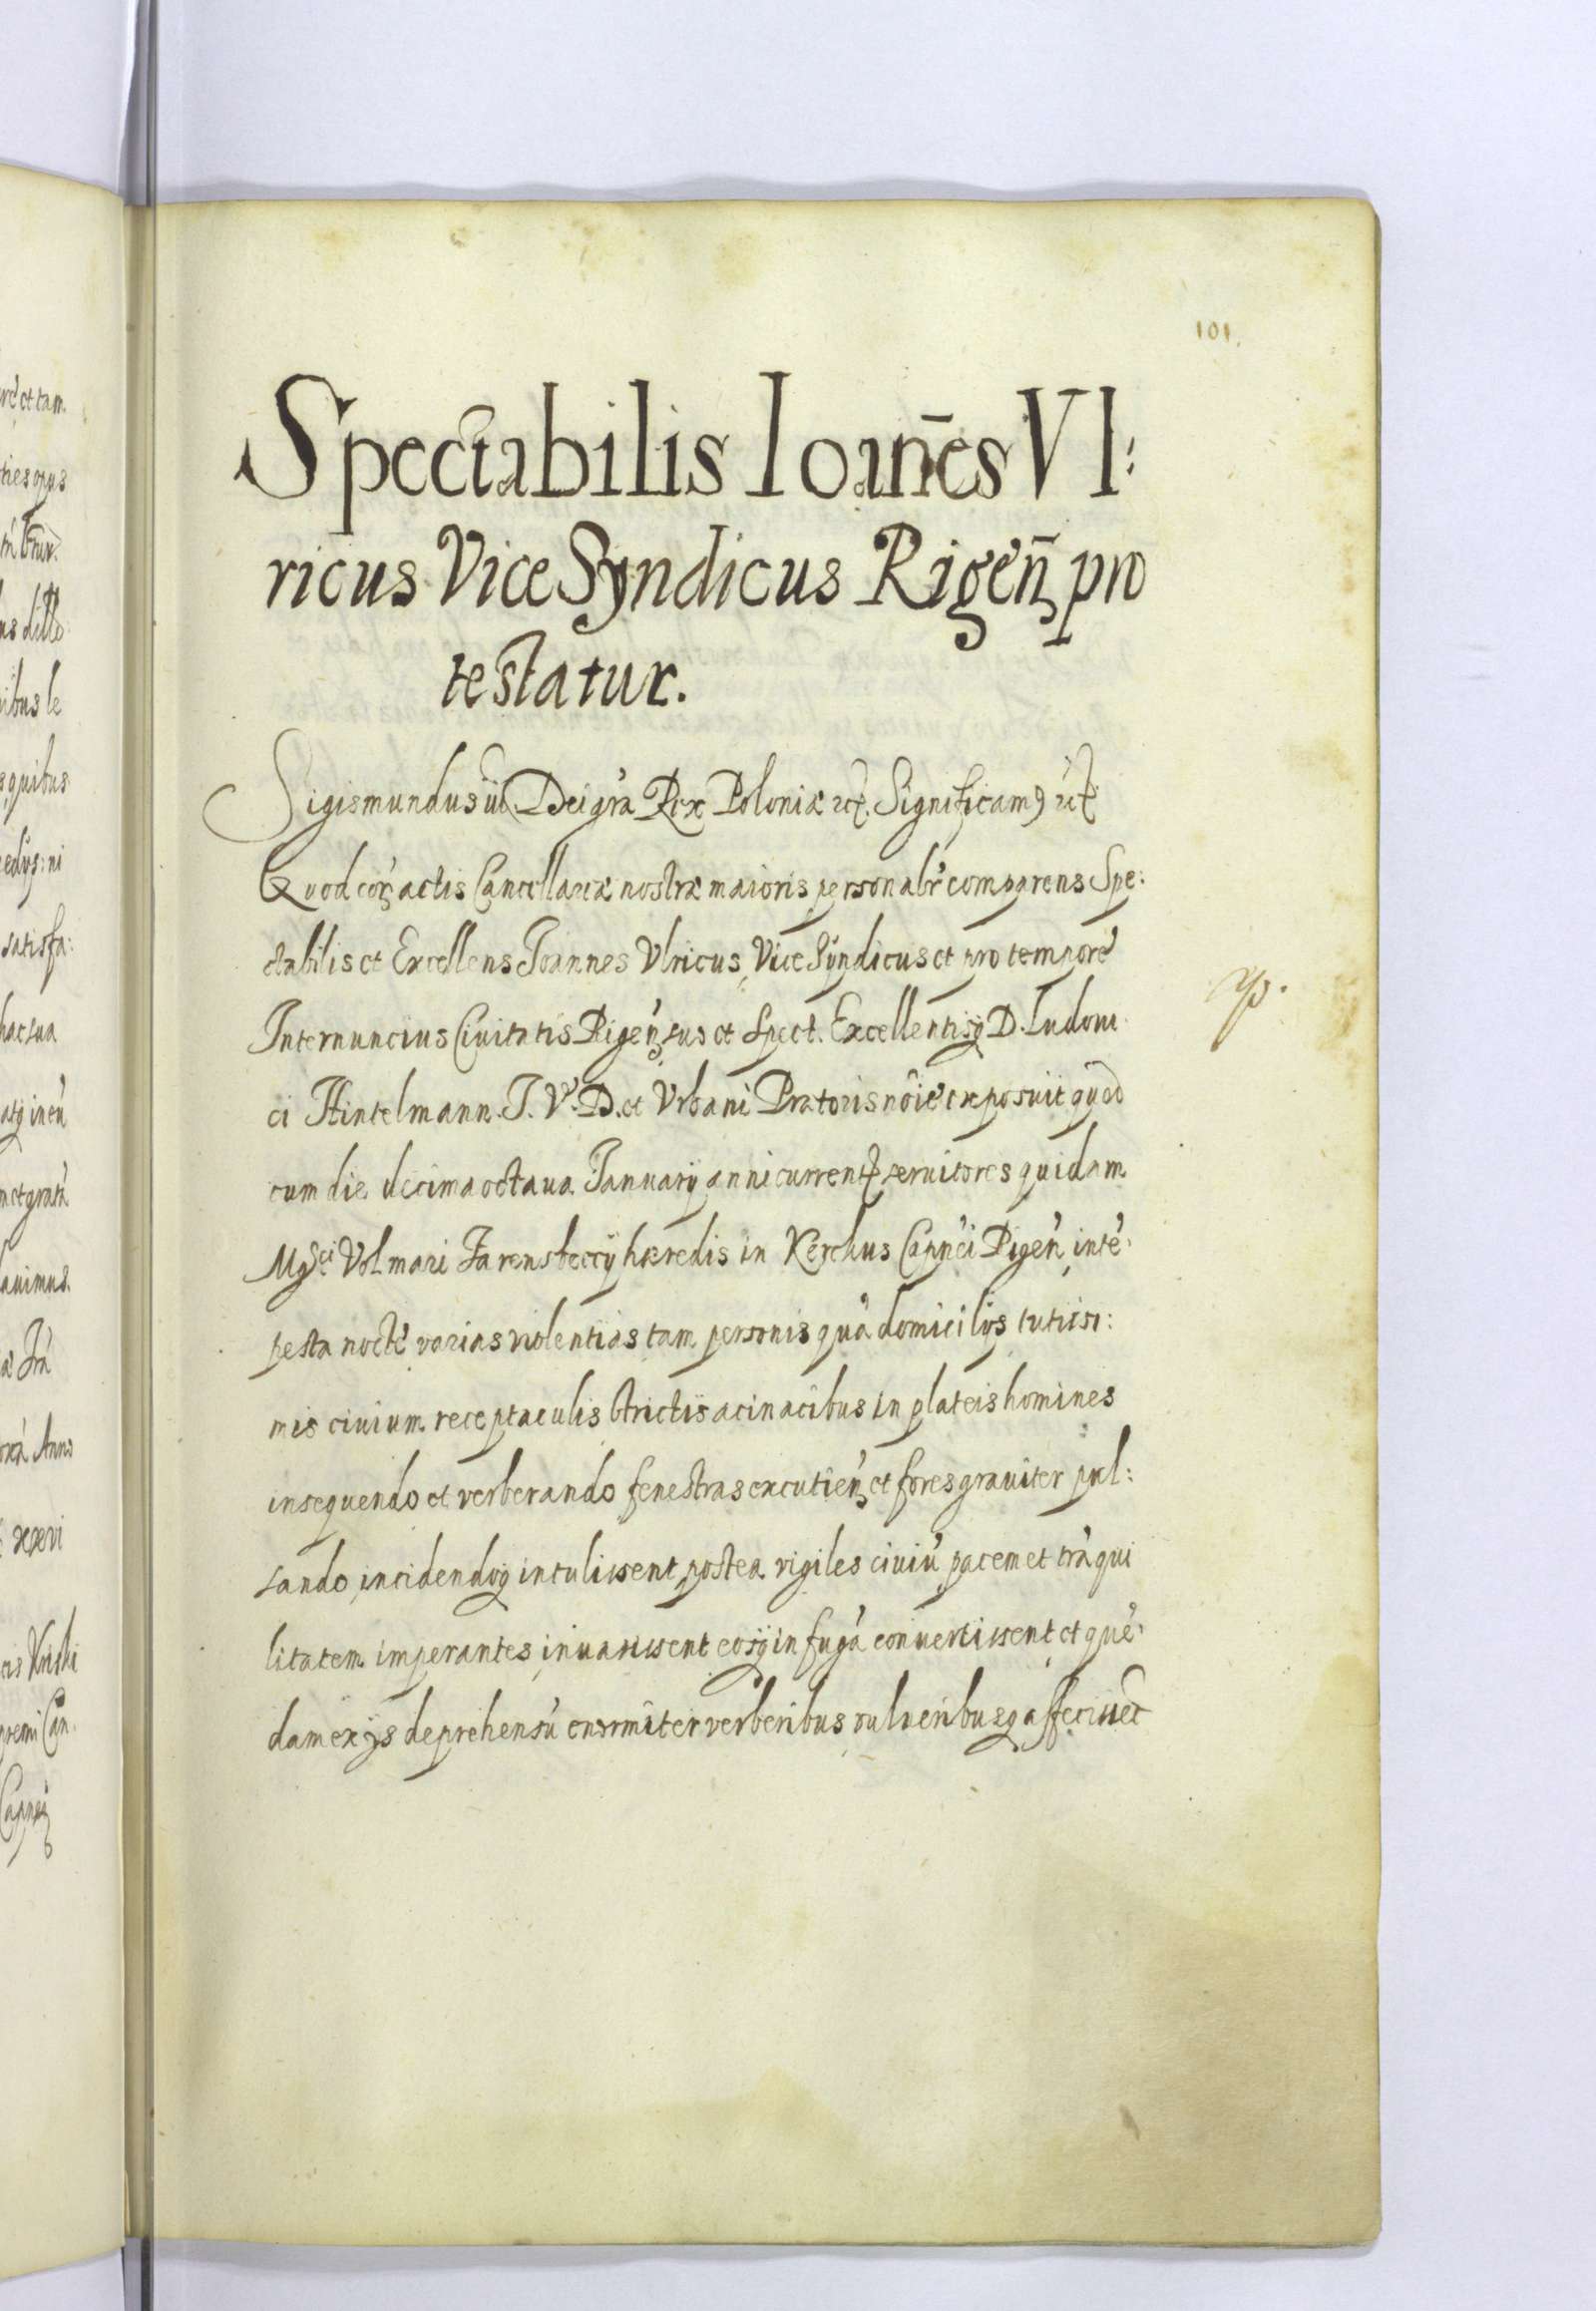 101.
Spectabilis Ioan̄es Vl:
ricus Vice Syndicus Rigen̄ pro
testatur.
Sigismundus iii Dei gra Rex Poloniæ etc. Significamus etc.
Quod corā actis Cancellariæ nostræ maioris personalr comparens Spe:
ctabilis et Excellens Joannes Vlricus Vice Syndicus et pro tempore
Internuncius Ciuitatis Rigen suo et Spect. Excellentisq D. Ludoui
ci Hintelmann J. V. D. et Vrbani Prætoris nôie exposuit quod
cum die decima octaua Januarij anni currentis seruitores quidam
Mgfci Volmari Farensbeccij hæredis in Kerchus Capnei Rigen, inte:
pesta nocte varias violentias tam personis quā domicilijs tutissi:
mis ciuium receptaculis strictis acinacibus in plateis homines
insequendo et verberando fenestras excutien et fores grauiter pul:
sando incidendoq intulissent, postea vigiles ciuiū pacem et trāqui
litatem imperantes inuasissent eosq in fugā conuertissent et que:
dam ex ijs deprehensū enormiter verberibus vulneribusq affecissēt